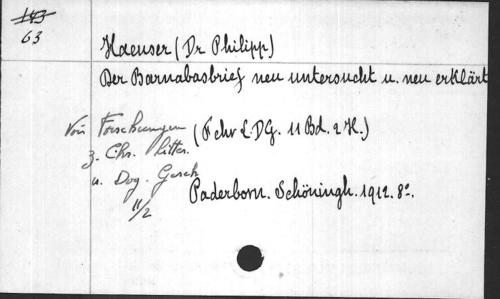 143
63
Haeuser (Dr Philipp)
Der Barnabasbrief neu untersucht u. neu erklärt
Von Forschungen (Fchr L.DG. 11 Bd. 2 H.)
z. Chr. litter.
u. Dog. Gesch
11/2
Paderborn. Schöningh. 1912. 8º.